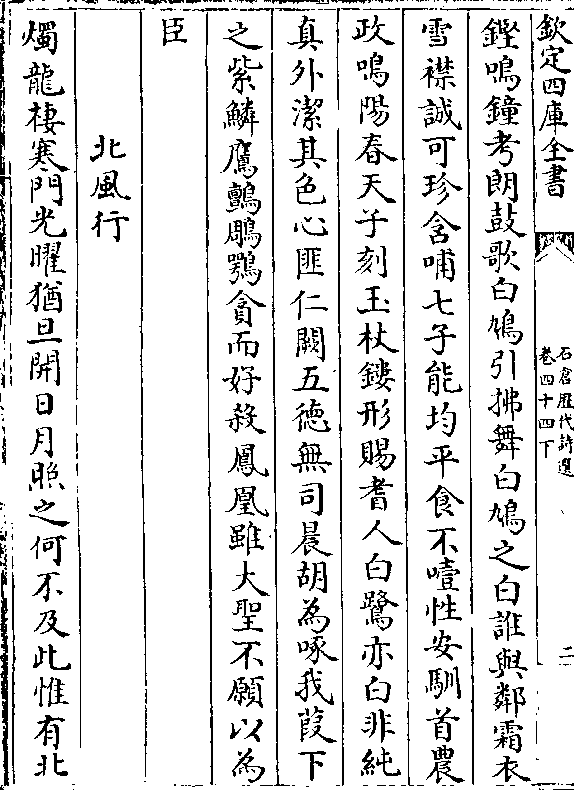 欽定四庫全書
石倉歷代詩選
卷四十四下
二
鏗鳴鐘考朗鼓歌白鳩引拂舞白鳩之白誰與鄰霜衣
雪襟誠可珍含哺七子能均平食不噎性安馴首農
政鳴陽春天子刻玉杖鏤形賜耆人白鷺亦白非純
真外潔其色心匪仁闕五德無司晨胡為啄我葭下
之紫鱗鷹鸇鵰鶚貪而好殺鳳凰雖大聖不願以為
臣
北風行
燭龍棲寒門光曜猶旦開日月照之何不及此惟有北